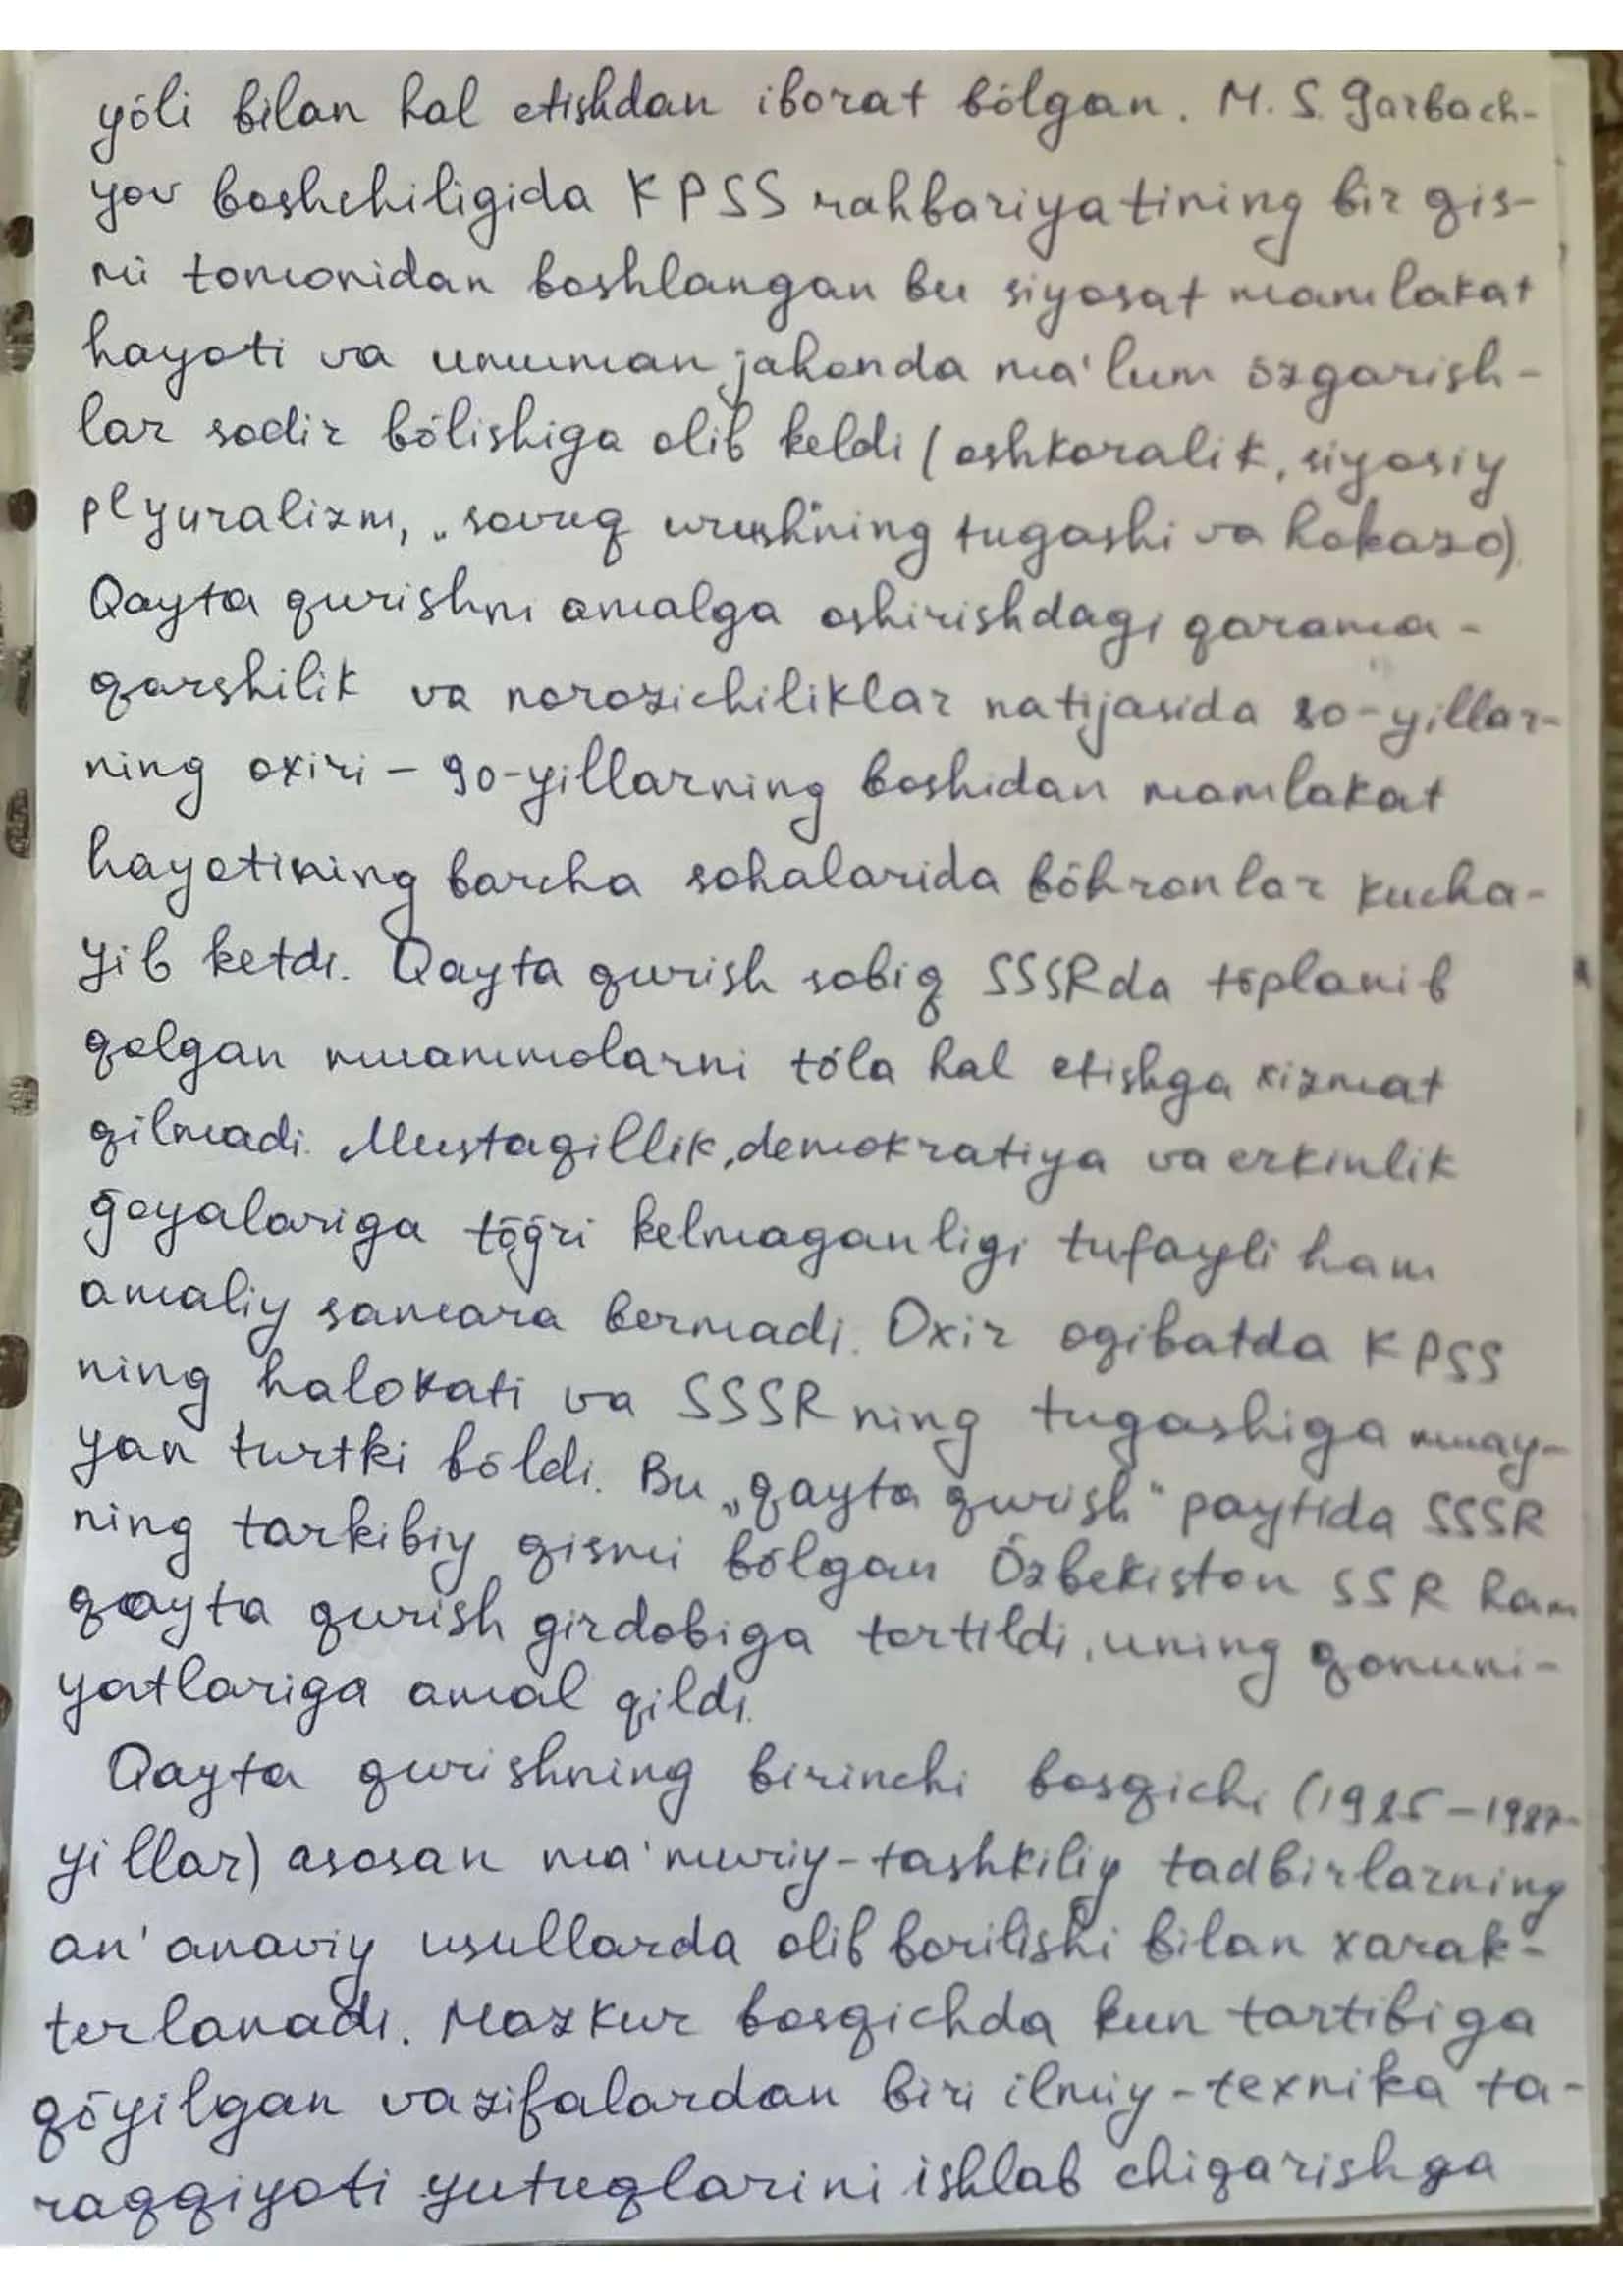 yõli bilan hal etishdan iborat bõlgan. M. S. Garbach-
yov boshchiligida KPSS rahbariyatining bir qis-
mi tomonidan boshlangan bu siyosat mamlakat
hayoti va umuman jahonda ma'lum õzgarish-
lar sodir bõlishiga olib keldi (oshkoralik, siyosiy
plyuralizm, „sovuq urush"ning tugashi va hokazo).
Qayta qurishni amalga oshirishdagi qarama-
qarshilik va norozichiliklar natijasida 80-yillar-
ning oxiri - 90-yillarning boshidan mamlakat
hayotining barcha sohalarida bõhronlar kucha-
yib ketdi. Qayta qurish sobiq SSSRda tõplanib
qolgan muammolarni tõla hal etishga xizmat
qilmadi. Mustaqillik, demokratiya va erkinlik
g̃oyalariga tõg̃ri kelmaganligi tufayli ham
amaliy samara bermadi. Oxir oqibatda KPSS
ning halokati va SSSR ning tugashiga muay-
yan turtki bõldi. Bu „qayta qurish" paytida SSSR
ning tarkibiy qismi bõlgan Õzbekiston SSR ham
qayta qurish girdobiga tortildi, uning qonuni-
yatlariga amal qildi.
Qayta qurishning birinchi bosqichi (1985-1987-
yillar) asosan ma'muriy-tashkiliy tadbirlarning
an'anaviy usullarda olib borilishi bilan xarak-
terlanadi. Mazkur bosqichda kun tartibiga
qõyilgan vazifalardan biri ilmiy-texnika ta-
raqqiyoti yutuqlarini ishlab chiqarishga